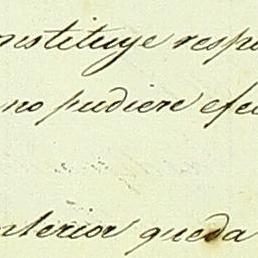 nstituye resp
no pudiere efe
nterior queda